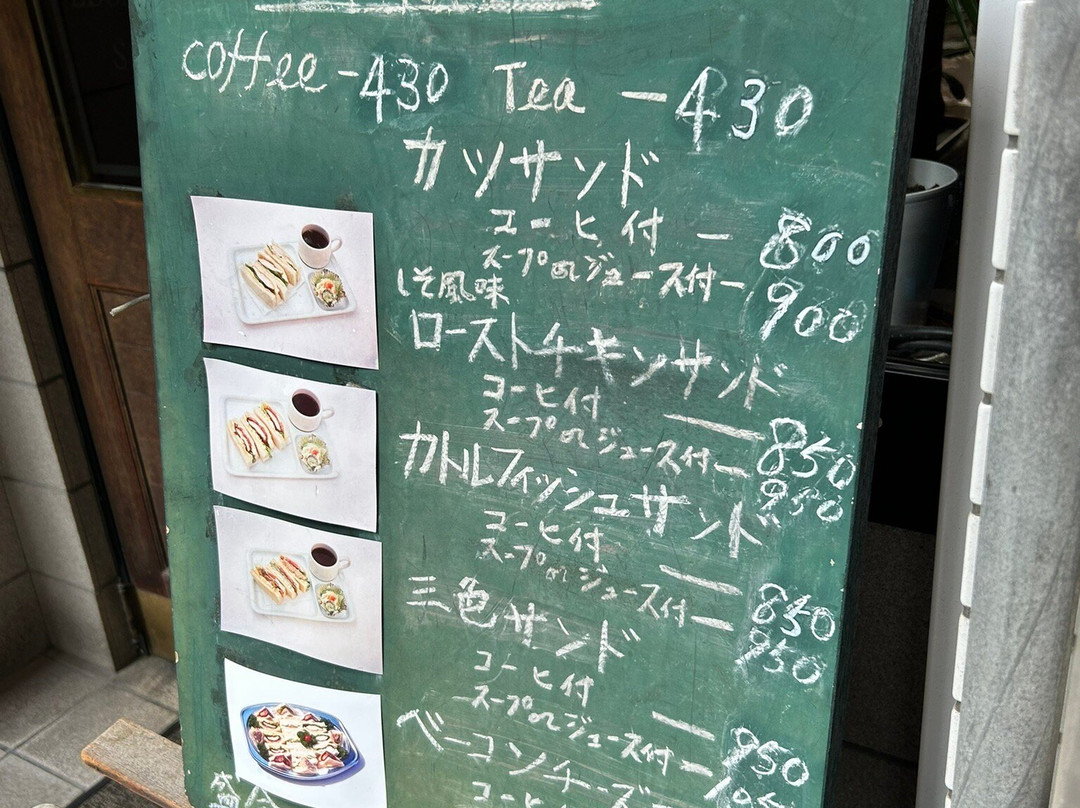 coffee - 430 Tea - 430
カツサンド
コーヒ付 - 800
スープorジュース付 - 900
しそ風味
ローストチキンサンド
コーヒ付 - 850
スープorジュース付 - 950
カトルフィッシュサンド
コーヒ付 - 850
スープorジュース付 - 950
三色サンド
コーヒ付 - 850
スープorジュース付 - 950
ベーコンチーズ
コーヒ付